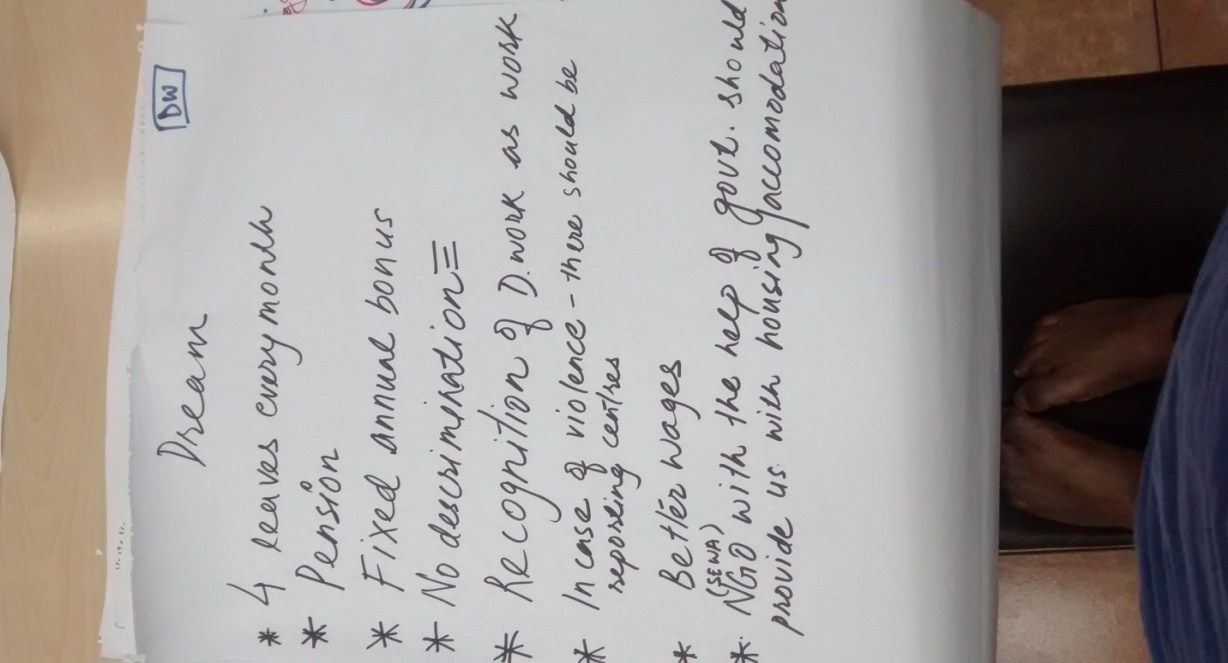 DW
Dream
* 4 leaves every month
* Pension
* Fixed annual bonus
* No descrimination
* Recognition of D.work as work
* In case of violence - there should be
reporting centres
* Better wages
(SEWA)
* NGO with the help of govt. should
provide us with housing/accomodation